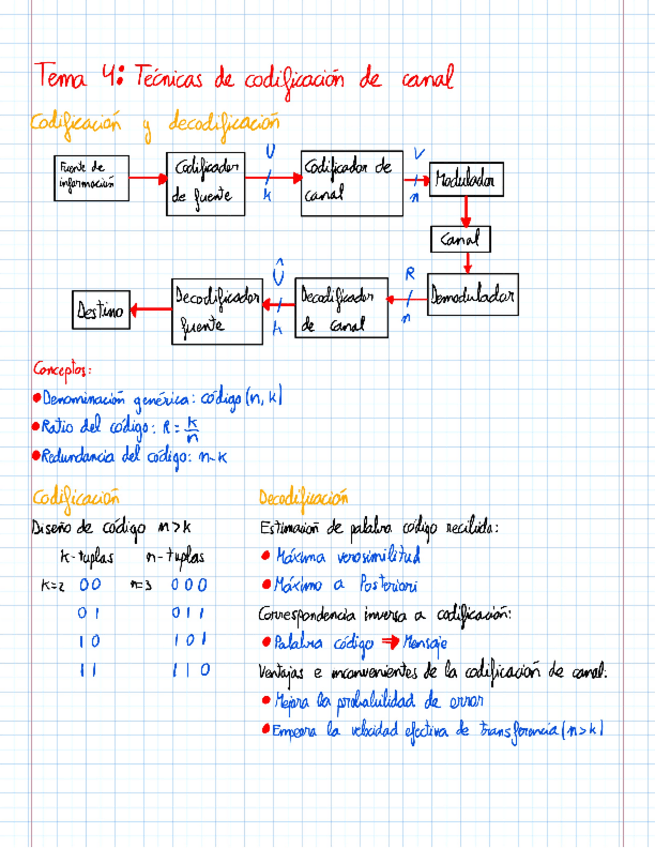 Tema 4: Técnicas de codificación de canal
Codificación y decodificación
Fuente de información
Codificador de fuente
U
k
Codificador de canal
V
n
Modulador
Canal
Demodulador
R
n
Decodificador de canal
Û
k
Decodificador fuente
Destino
Conceptos:
• Denominación genérica: código (n, k)
• Ratio del código: R = k/n
• Redundancia del código: n-k
Codificación
Diseño de código n>k
k-tuplas n-tuplas
k=2 00 n=3 000
01 011
10 101
11 110
Decodificación
Estimación de palabra código recibida:
• Máxima verosimilitud
• Máximo a Posteriori
Correspondencia inversa a codificación:
• Palabra código ⇒ Mensaje
Ventajas e inconvenientes de la codificación de canal:
• Mejora la probabilidad de error
• Empeora la velocidad efectiva de transferencia (n>k)